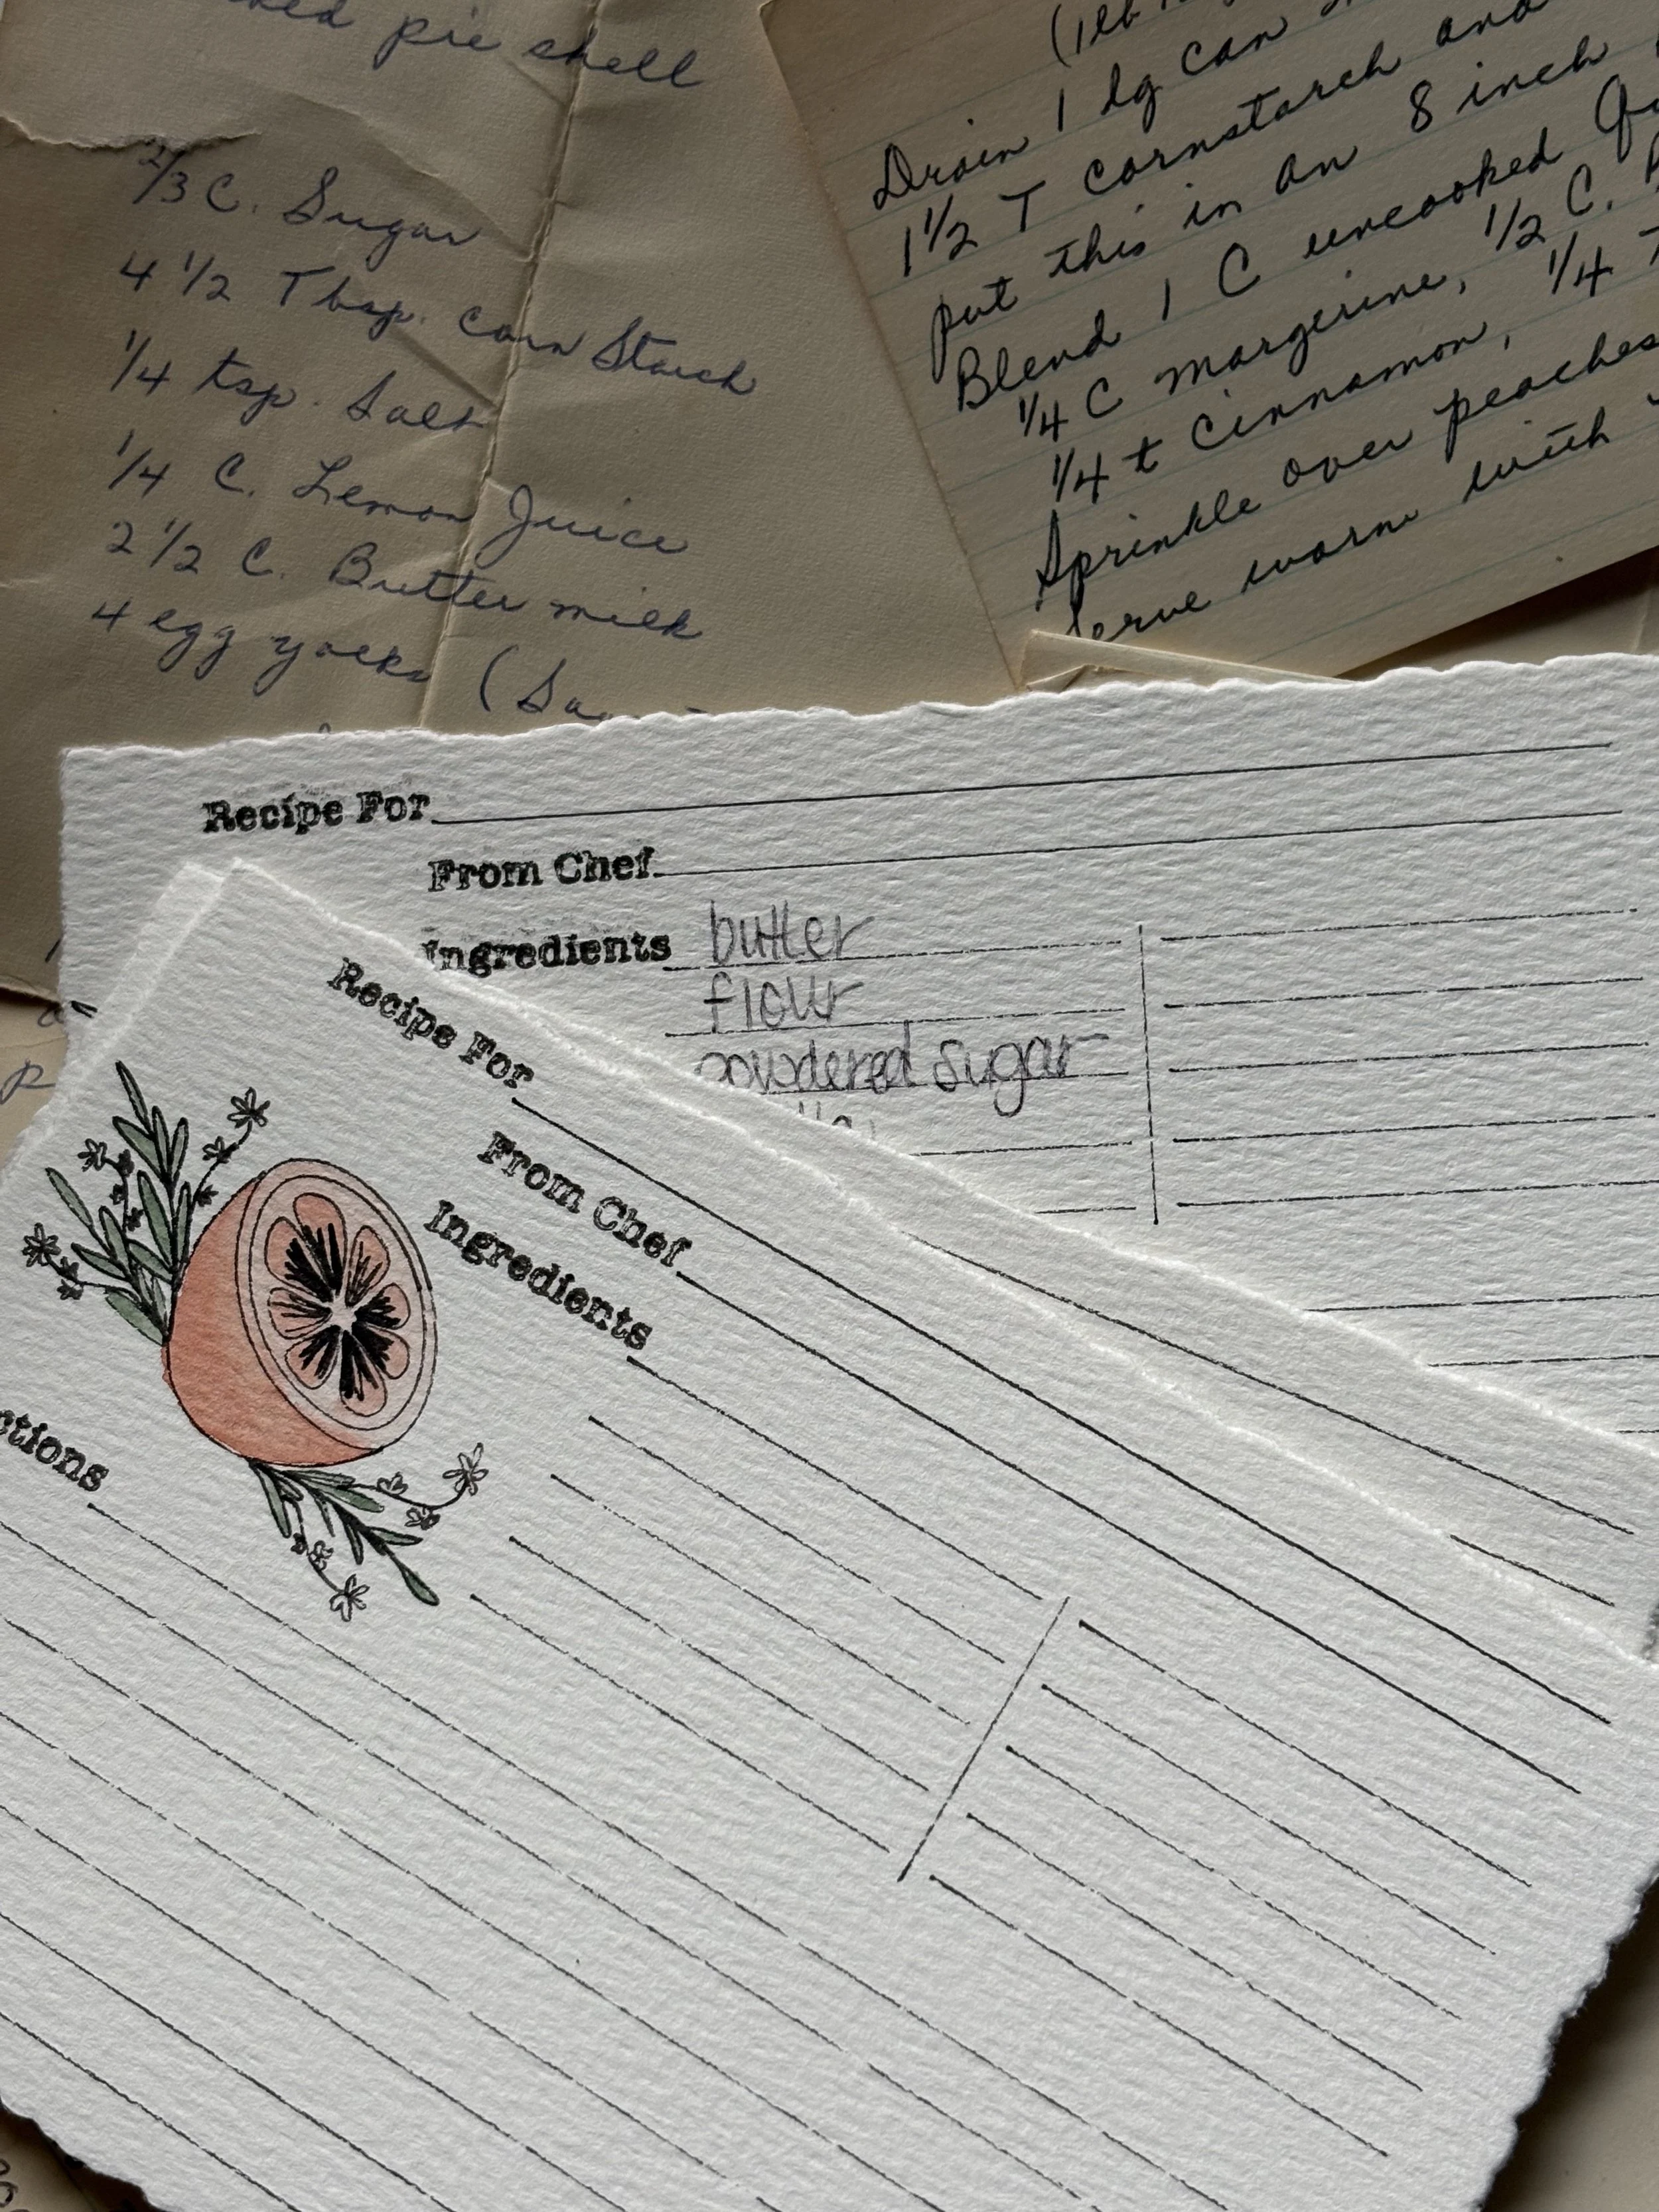 pie shell
2/3 C. Sugar
4 1/2 Tbsp. corn Starch
1/4 tsp. Salt
1/4 C. Lemon Juice
2 1/2 C. Butter milk
4 egg yolks
Drain 1 lg can
1 1/2 T cornstarch and
put this in an 8 inch
Blend 1 C uncooked
1/4 C margerine, 1/2 C.
1/4 t cinnamon, 1/4
Sprinkle over peaches
Serve warm with
Recipe For
From Chef
Ingredients butter
flour
powdered sugar
Recipe For
From Chef
Ingredients